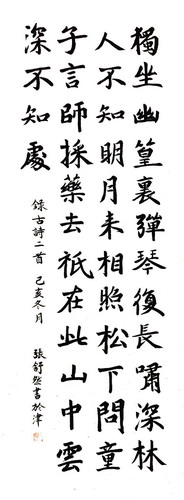 獨坐幽篁裏彈琴復長嘯深林
人不知明月来相照松下問童
子言師採藥去祇在此山中雲
深不知處
録古詩二首 己亥冬月 張舒然書於津